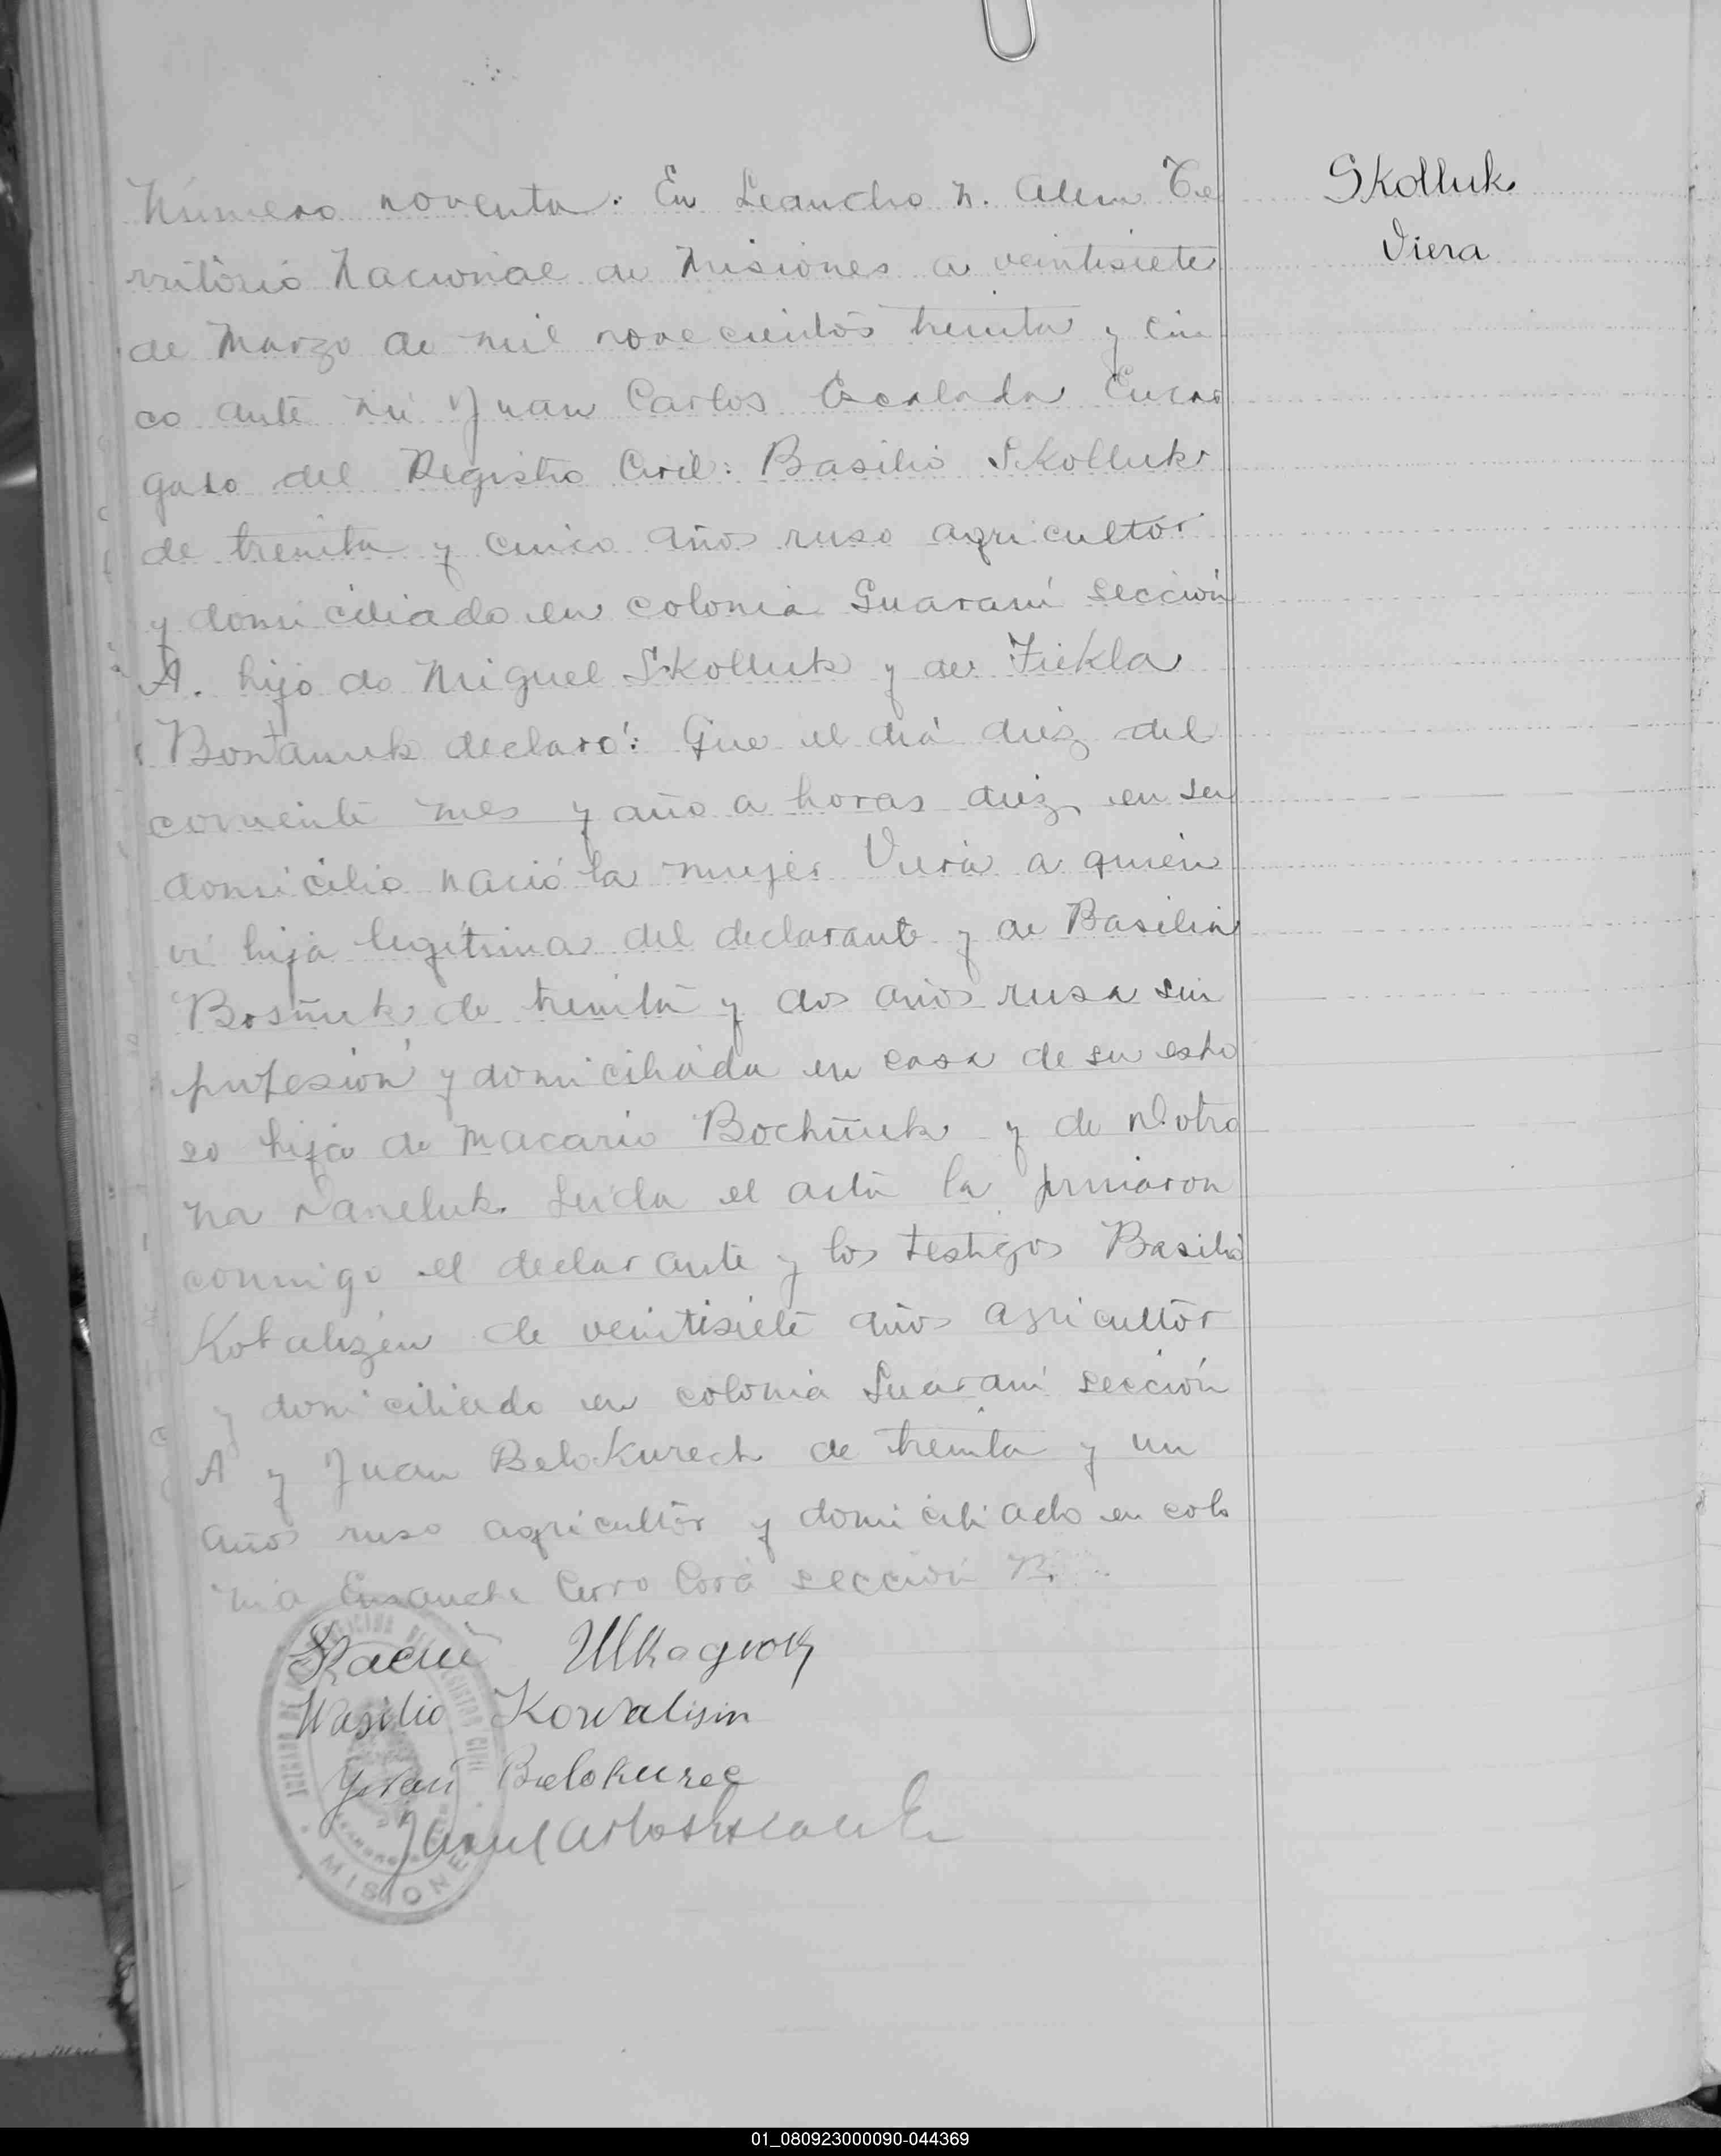 Skolluk
Viera
Número noventa: En Leandro N. Alem Te
rritorio Nacional de Misiones a veintisiete
de Marzo de mil novecientos treinta y cin
co ante mi Juan Carlos Escalada Encar
gado del Registro Civil: Basilio Skolluk
de treinta y cinco años ruso agricultor
y domiciliado en colonia Guaraní sección
A. hijo de Miguel Skolluk y de Fiekla
declaró: Que el día diez del
corriente mes y año a horas diez en su
domicilio nació la mujer Viera a quien
vi hija legítima del declarante y de Basilia
de treinta y dos años rusa sin
profesión y domiciliada en casa de su espo
so hija de Macario y de
na Leida el acta la firmaron
conmigo el declarante y los testigos Basilio
de veintisiete años agricultor
y domiciliado en colonia Guaraní sección
A y Juan Belokurech de treinta y un
años ruso agricultor y domiciliado en colo
nia Ensanche Cerro Corá sección B.
Wasilio Kowalisin
Bielokurec
MISIONES
01_080923000090-044369